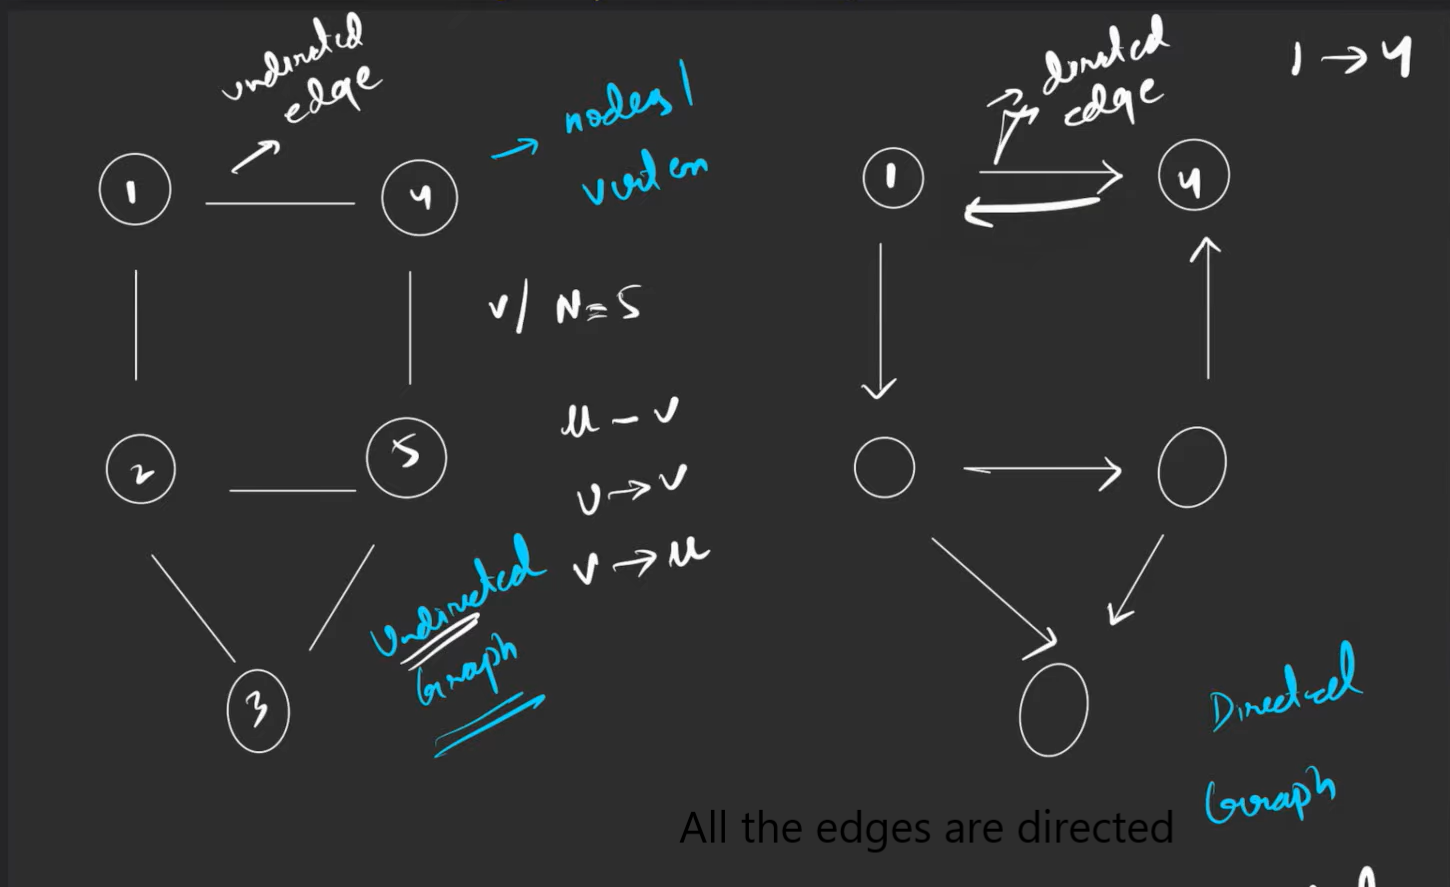 undirected
edge
1
4
nodes /
vertex
V/ N = 5
2
5
u - v
u → v
v → u
3
Undirected
Graph
directed
edge
1 → 4
1
4
Directed
Graph
All the edges are directed